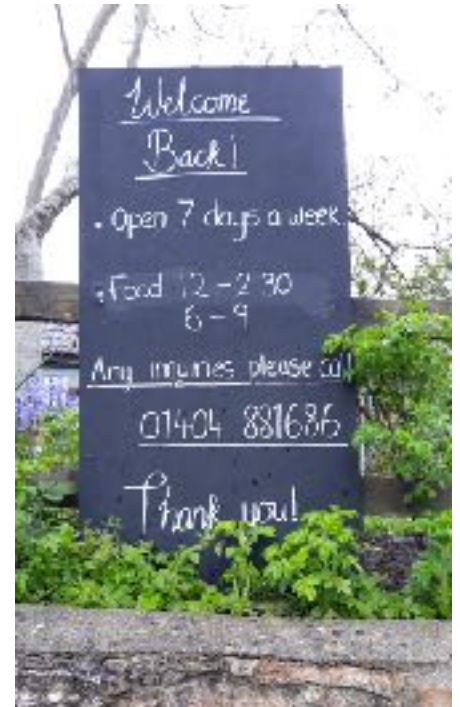 Welcome
Back!
• Open 7 days a week
• Food 12 - 2.30
6 - 9
Any inquiries please call
01404 881686
Thank you!